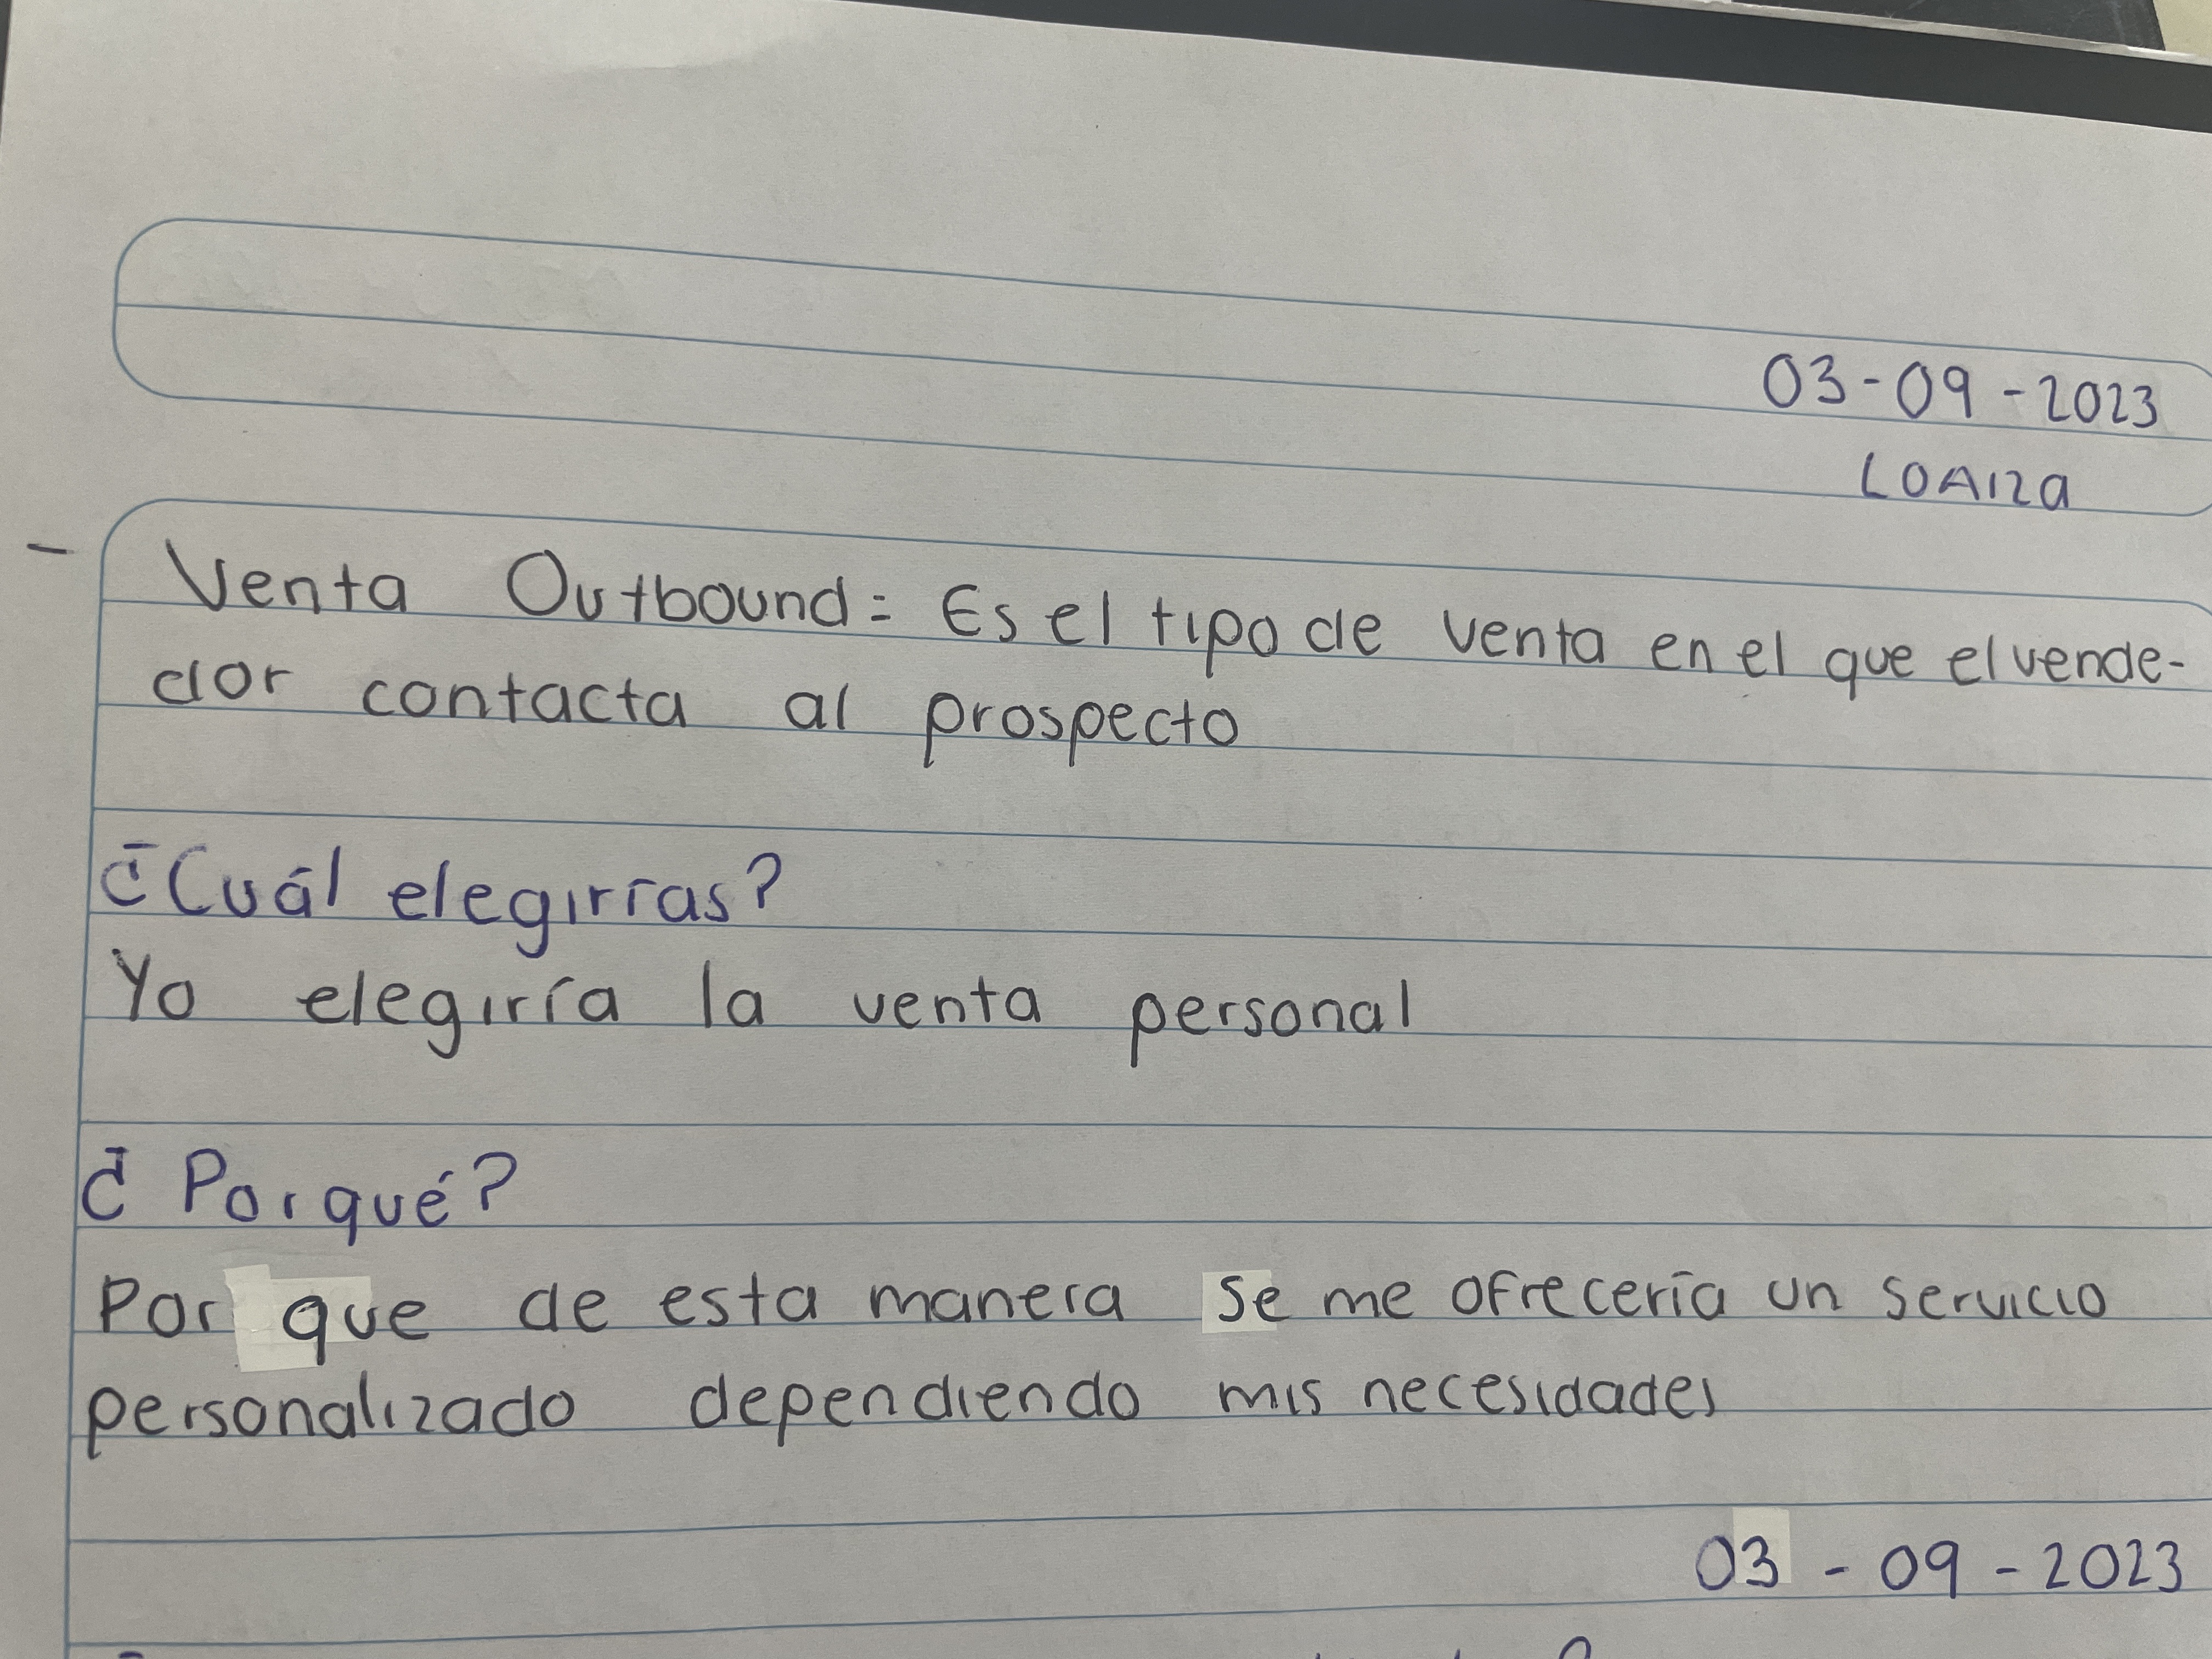 03-09-2023
LOAIza
- Venta Outbound: Es el tipo de venta en el que el vende-
dor contacta al prospecto
¿Cuál elegirías?
Yo elegiría la venta personal
¿Por qué?
Por que de esta manera se me ofrecería un servicio
personalizado dependiendo mis necesidades
03-09-2023